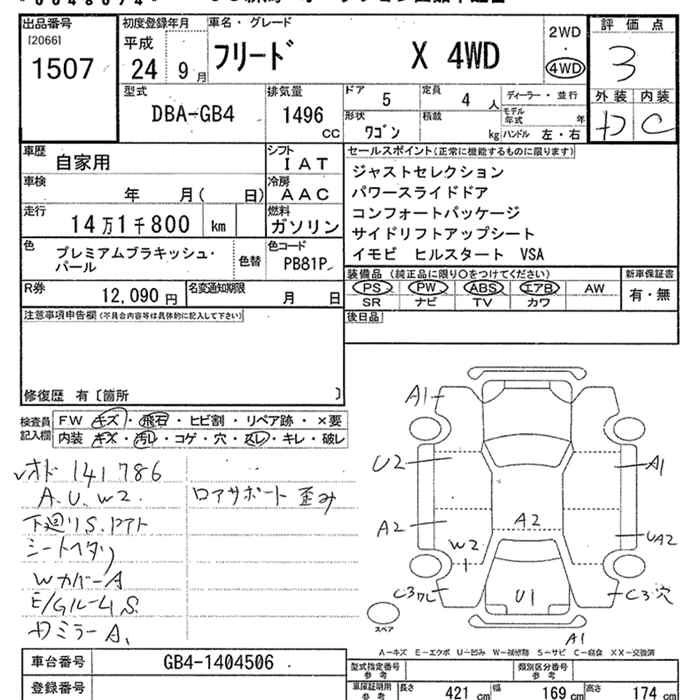 出品番号
[2066]
1507
初度登録年月
平成
24 9月
車名・グレード
フリード X 4WD
2WD
・
4WD
評価点
3
外装 内装
D C
型式
DBA-GB4
排気量
1496
CC
ドア 5
定員 4 人
ディーラー・並行
モデル年式 年
形状
ワゴン
積載 kg
ハンドル 左・右
車歴 自家用
シフト
IAT
車検 年 月( 日)
冷房
AAC
走行 14万1千800 km
燃料
ガソリン
色 プレミアムブラキッシュ・
パール
色替
色コード
PB81P
R券 12,090 円
名変通知期限
月 日
セールスポイント(正常に機能するものに限ります)
ジャストセレクション
パワースライドドア
コンフォートパッケージ
サイドリフトアップシート
イモビ ヒルスタート VSA
装備品 (純正品に限り○をつけてください)
新車保証書
PS PW ABS エアB AW
SR ナビ TV カワ
有・無
注意事項申告欄(不具合内容等は具体的に記入して下さい)
後日品
修復歴 有〔箇所 〕
検査員
記入欄
FW キズ・飛石・ヒビ割・リペア跡・×要
内装 キズ・汚レ・コゲ・穴・スレ・キレ・破レ
オド 141786
A.U.W2.
ロアサポート 歪み
下廻りS.
シートヘタリ
WカバーA
E/GルームS.
ミラーA.
A1
U2
A2
W2
A2
U1
A1
UA2
C3穴
A1
スペア
A-キズ E-エクボ U-凹み W-補修跡 S-サビ C-腐食 XX-交換済
車台番号 GB4-1404506
登録番号
型式指定番号
参考
類別区分番号
参考
車庫証明用
参考
長さ 421 cm
幅 169 cm
高さ 174 cm